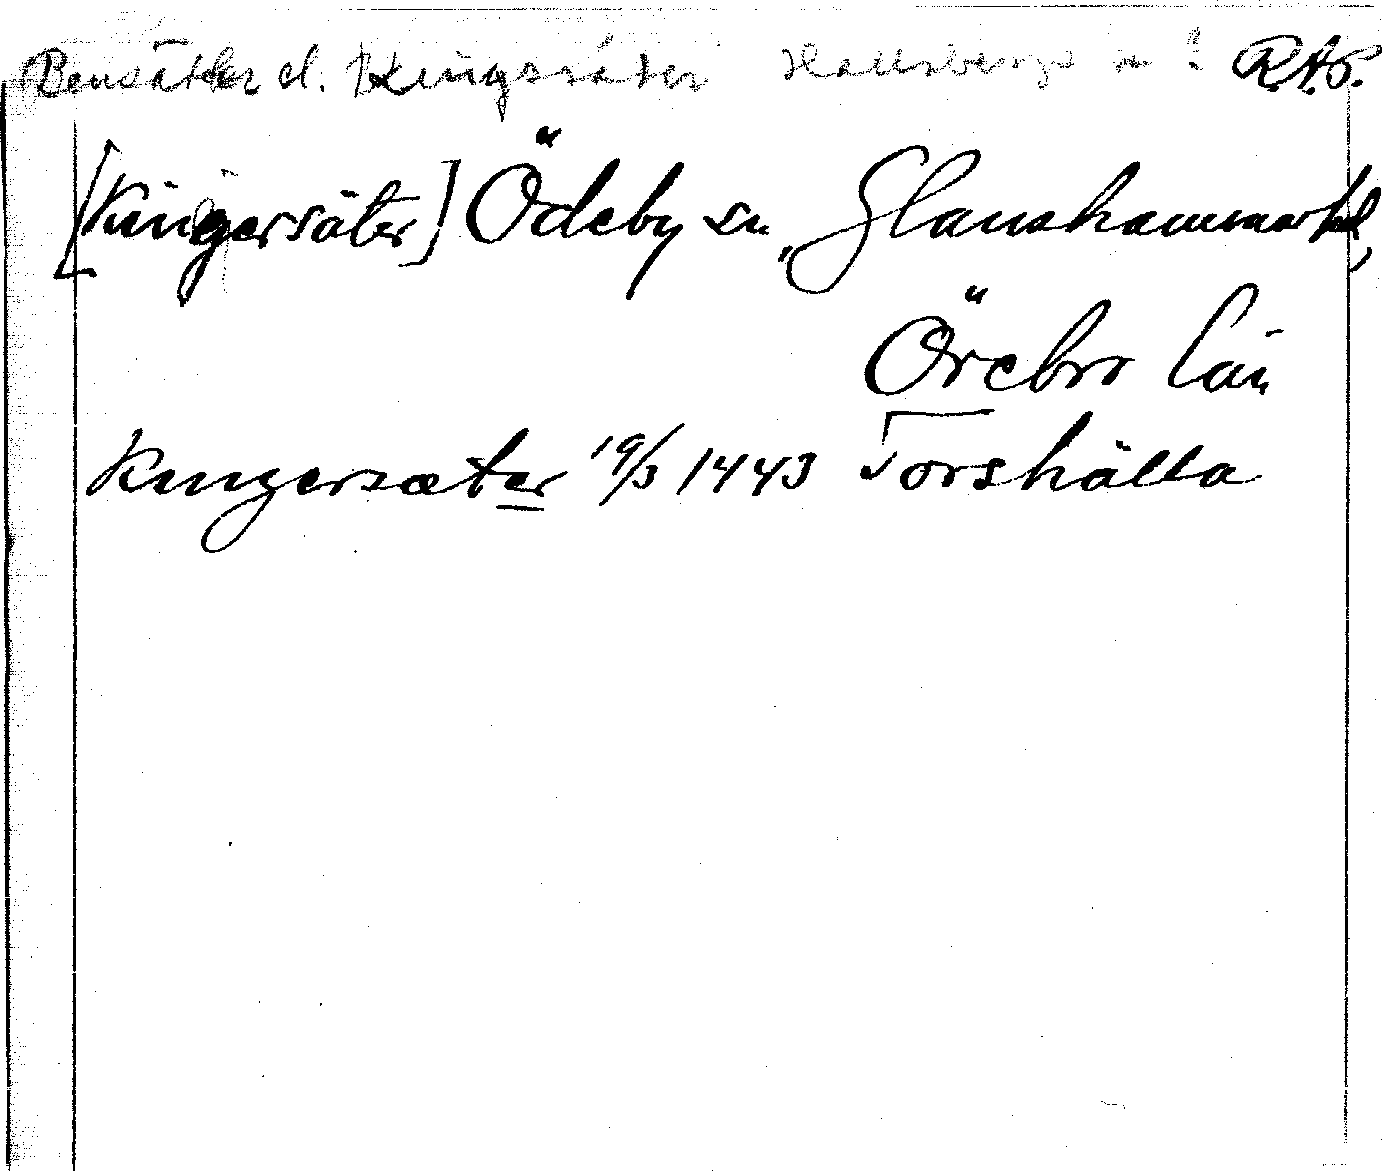 Bensäter el. Kingsäter Hallsbergs sn? R.A.P.
[Kingersäter] Ödeby sn, Glanshammar hd,
Örebro län
Kingersæter 19/3 1443 Torshälla